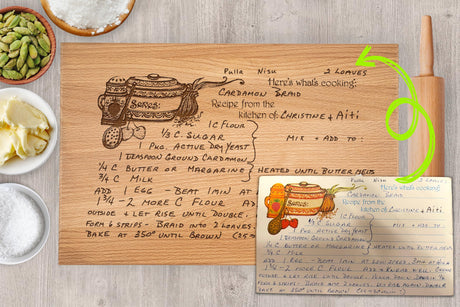 Pulla Nisu 2 Loaves
Here's what's cooking:
Cardamon Braid
Recipe from the
kitchen of: Christine & Aiti
Serves:
1 C Flour
1/3 C. Sugar Mix + Add To:
1 Pkg. Active Dry Yeast
1 Teaspoon Ground Cardamon
1/4 C Butter or Margarine Heated Until Butter Melts
3/4 C Milk
Add 1 Egg - Beat 1 Min at
1 3/4 - 2 More C Flour
Outside & Let Rise Until Double.
Form 6 Strips - Braid into 2 Loaves
Bake at 350° Until Brown (25
Pulla Nisu 2 Loaves
Here's what's cooking:
Cardamon Braid
Recipe from the
kitchen of: Christine & Aiti
Serves:
1 C Flour
1/3 C Sugar Mix + Add To:
1 Pkg. Active Dry Yeast
1 Teaspoon Ground Cardamon
1/4 C Butter or Margarine Heated Until Butter Melts
3/4 C Milk
Add 1 Egg - Beat
1 3/4 - 2 More C Flour